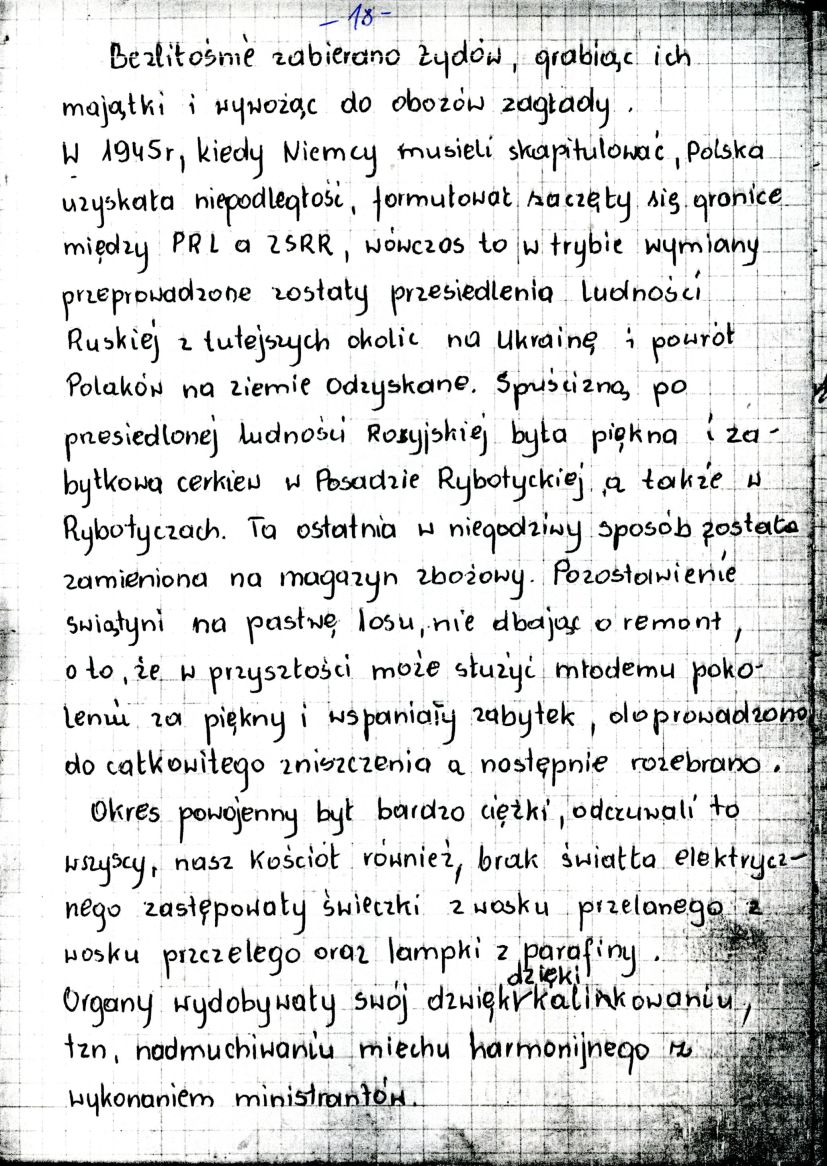 - 18 -
Bezlitośnie zabierano Żydów, grabiąc ich
majątki i wywożąc do obozów zagłady.
W 1945r, kiedy Niemcy musieli skapitulować, Polska
uzyskała niepodległość, formułować zaczęły się granice
między PRL a ZSRR, wówczas to w trybie wymiany
przeprowadzone zostały przesiedlenia ludności
Ruskiej z tutejszych okolic na Ukrainę i powrót
Polaków na ziemie Odzyskane. Spuścizną po
przesiedlonej ludności Rosyjskiej była piękna i za-
bytkowa cerkiew w Posadzie Rybotyckiej, a także w
Rybotyczach. Ta ostatnia w niegodziwy sposób została
zamieniona na magazyn zbożowy. Pozostawienie
świątyni na pastwę losu, nie dbając o remont,
o to, że w przyszłości może służyć młodemu poko-
leniu za piękny i wspaniały zabytek, doprowadzono
do całkowitego zniszczenia a następnie rozebrano.
Okres powojenny był bardzo ciężki, odczuwali to
wszyscy, nasz Kościół również, brak światła elektrycz-
nego zastępowały świeczki z wosku przelanego z
wosku przczelego oraz lampki z parafiny.
Organy wydobywały swój dzwięk dzięki kalinkowaniu,
tzn, nadmuchiwaniu miechu harmonijnego z
wykonaniem ministrantów.